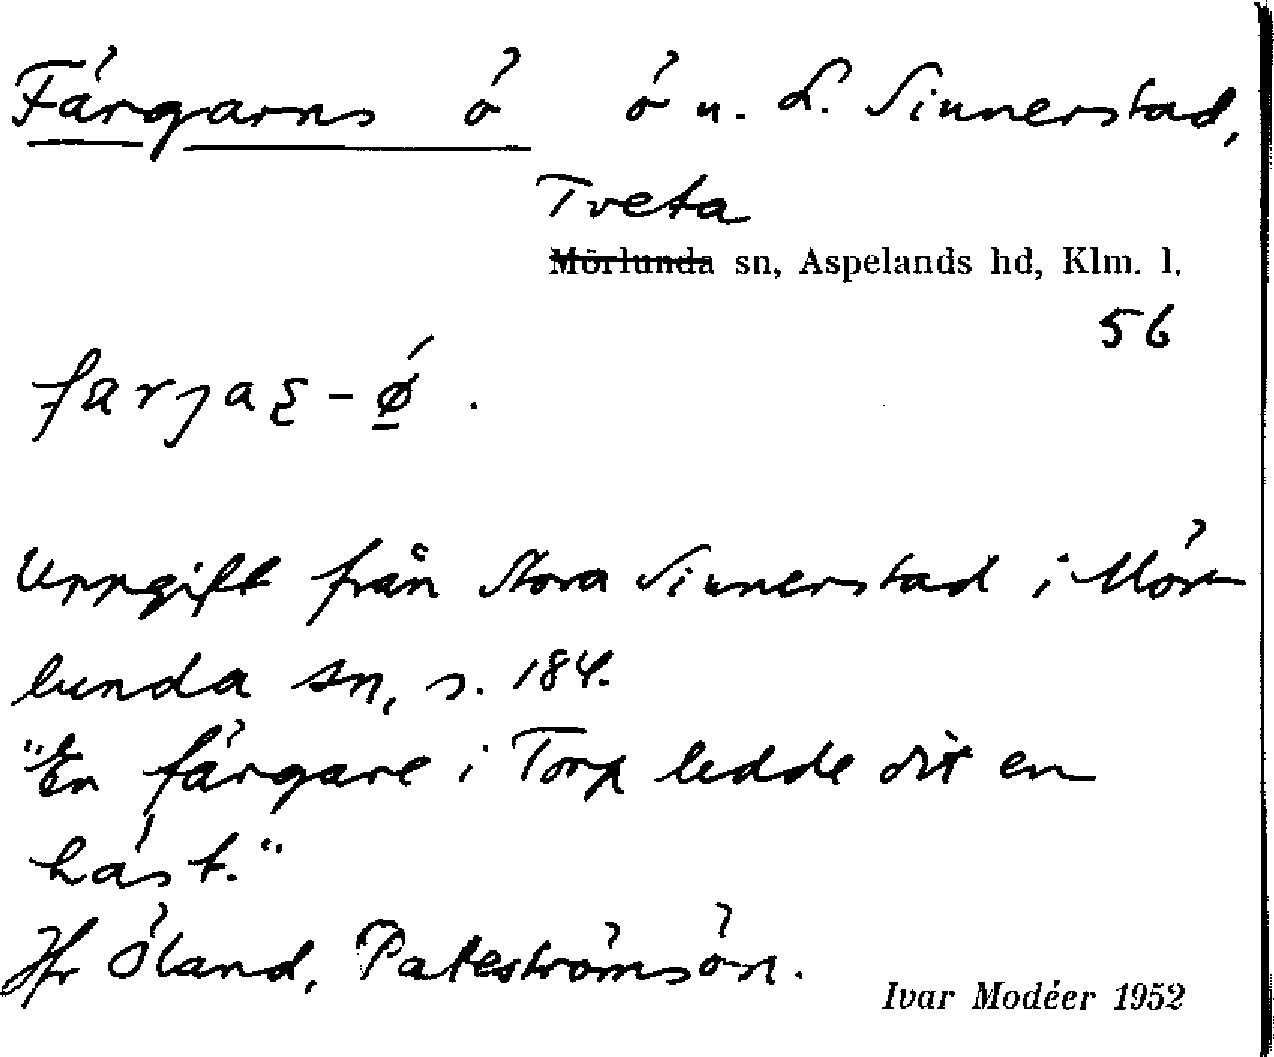 Färgarns ö ö n. L. Sinnerstad,
Tveta
Mörlunda sn, Aspelands hd, Klm. l.
56
Uppgift från Stora Sinnerstad i Mör-
lunda sn, s. 184.
"En färgare i Torp ledde dit en
häst."
Jfr Öland, Pateströmsön.
Ivar Modéer 1952